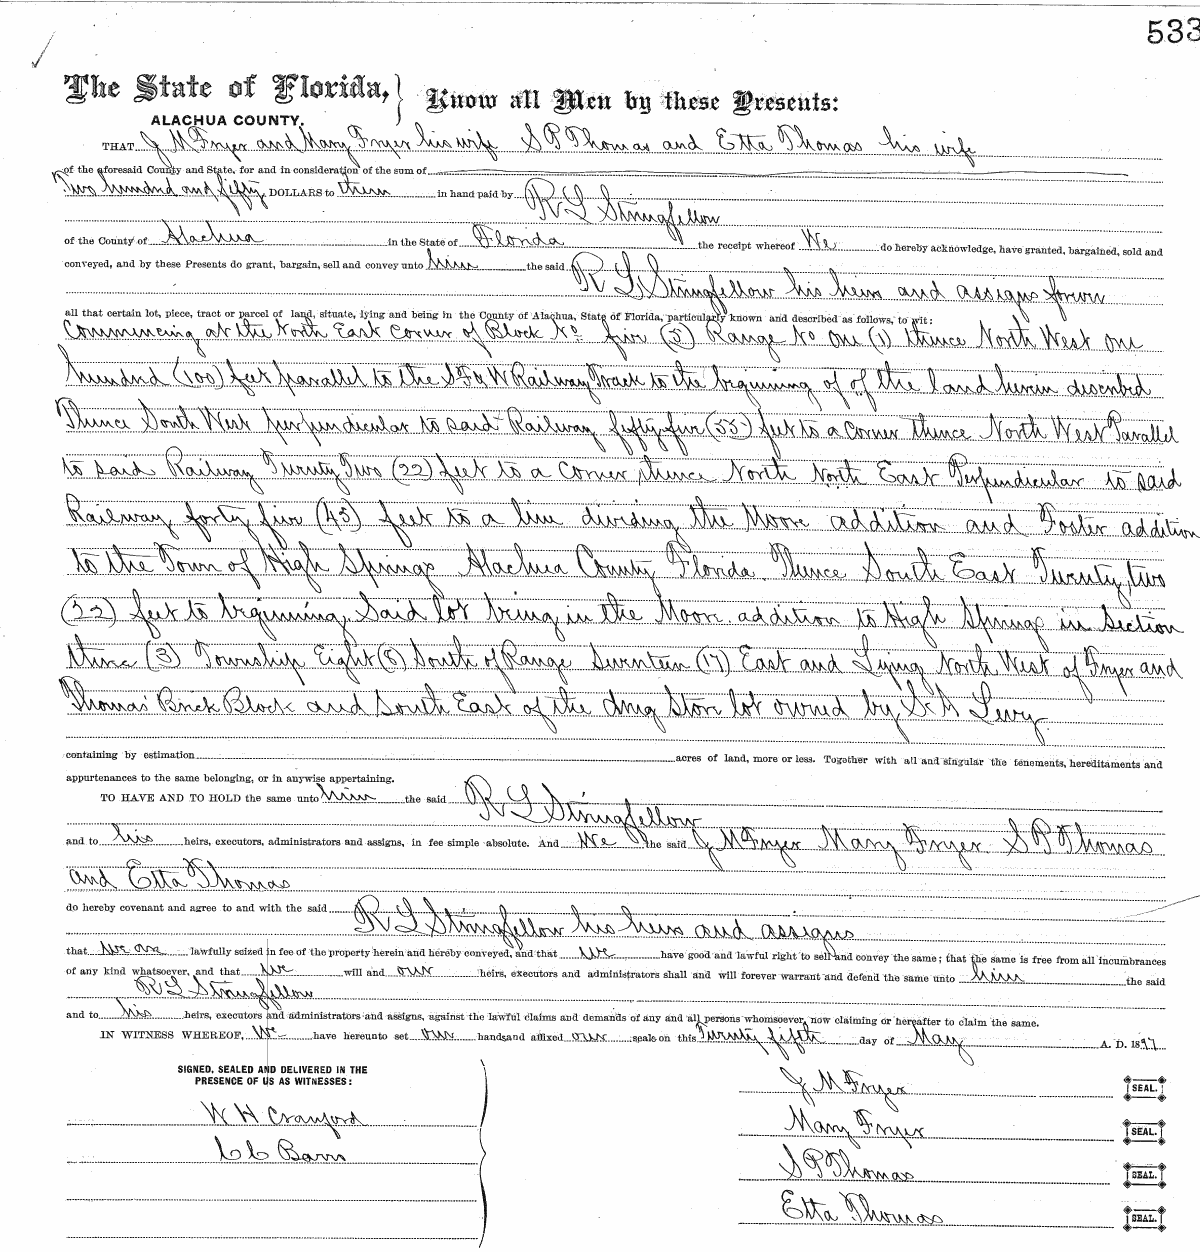 533
The State of Florida, } Know all Men by these Presents:
ALACHUA COUNTY.
THAT J M Fryer and Mary Fryer his wife S P Thomas and Etta Thomas his wife
of the aforesaid County and State, for and in consideration of the sum of
Two hundred and fifty DOLLARS to them in hand paid by R L Stringfellow
of the County of Alachua in the State of Florida the receipt whereof We do hereby acknowledge, have granted, bargained, sold and
conveyed, and by these Presents do grant, bargain, sell and convey unto him the said R L Stringfellow his heirs and assigns forever
all that certain lot, piece, tract or parcel of land, situate, lying and being in the County of Alachua, State of Florida, particularly known and described as follows, to wit:
Commencing at the North East Corner of Block No five (5) Range No One (1) thence North West one
hundred (100) feet parallel to the S F & W Railway Track to the beginning of of the land herein described
Thence South West perpendicular to said Railway fifty five (55) feet to a Corner thence North West Parallel
to said Railway Twenty Two (22) feet to a Corner thence North North East Perpendicular to said
Railway forty five (45) feet to a line dividing the Moore addition and Foster addition
to the Town of High Springs Alachua County Florida. Thence South East Twenty two
(22) feet to beginning. Said lot being in the Moore addition to High Springs in Section
three (3) Township Eight (8) South of Range Seventeen (17) East and Lying North West of Fryer and
Thomas' Brick Block and South East of the drug store lot owned by Levy
containing by estimation acres of land, more or less. Together with all and singular the tenements, hereditaments and
appurtenances to the same belonging, or in anywise appertaining.
TO HAVE AND TO HOLD the same unto him the said R L Stringfellow
and to his heirs, executors, administrators and assigns, in fee simple absolute. And We the said J M Fryer Mary Fryer S P Thomas
and Etta Thomas
do hereby covenant and agree to and with the said R L Stringfellow his heirs and assigns
that we are lawfully seized in fee of the property herein and hereby conveyed, and that we have good and lawful right to sell and convey the same; that the same is free from all incumbrances
of any kind whatsoever, and that we will and our heirs, executors and administrators shall and will forever warrant and defend the same unto him the said
R L Stringfellow
and to his heirs, executors and administrators and assigns, against the lawful claims and demands of any and all persons whomsoever, now claiming or hereafter to claim the same.
IN WITNESS WHEREOF, We have hereunto set our hands and affixed our seals on this Twenty fifth day of May A. D. 1897
SIGNED, SEALED AND DELIVERED IN THE
PRESENCE OF US AS WITNESSES:
J M Fryer SEAL.
W H Cranford
Mary Fryer SEAL.
C C Barrs
S P Thomas SEAL.
Etta Thomas SEAL.